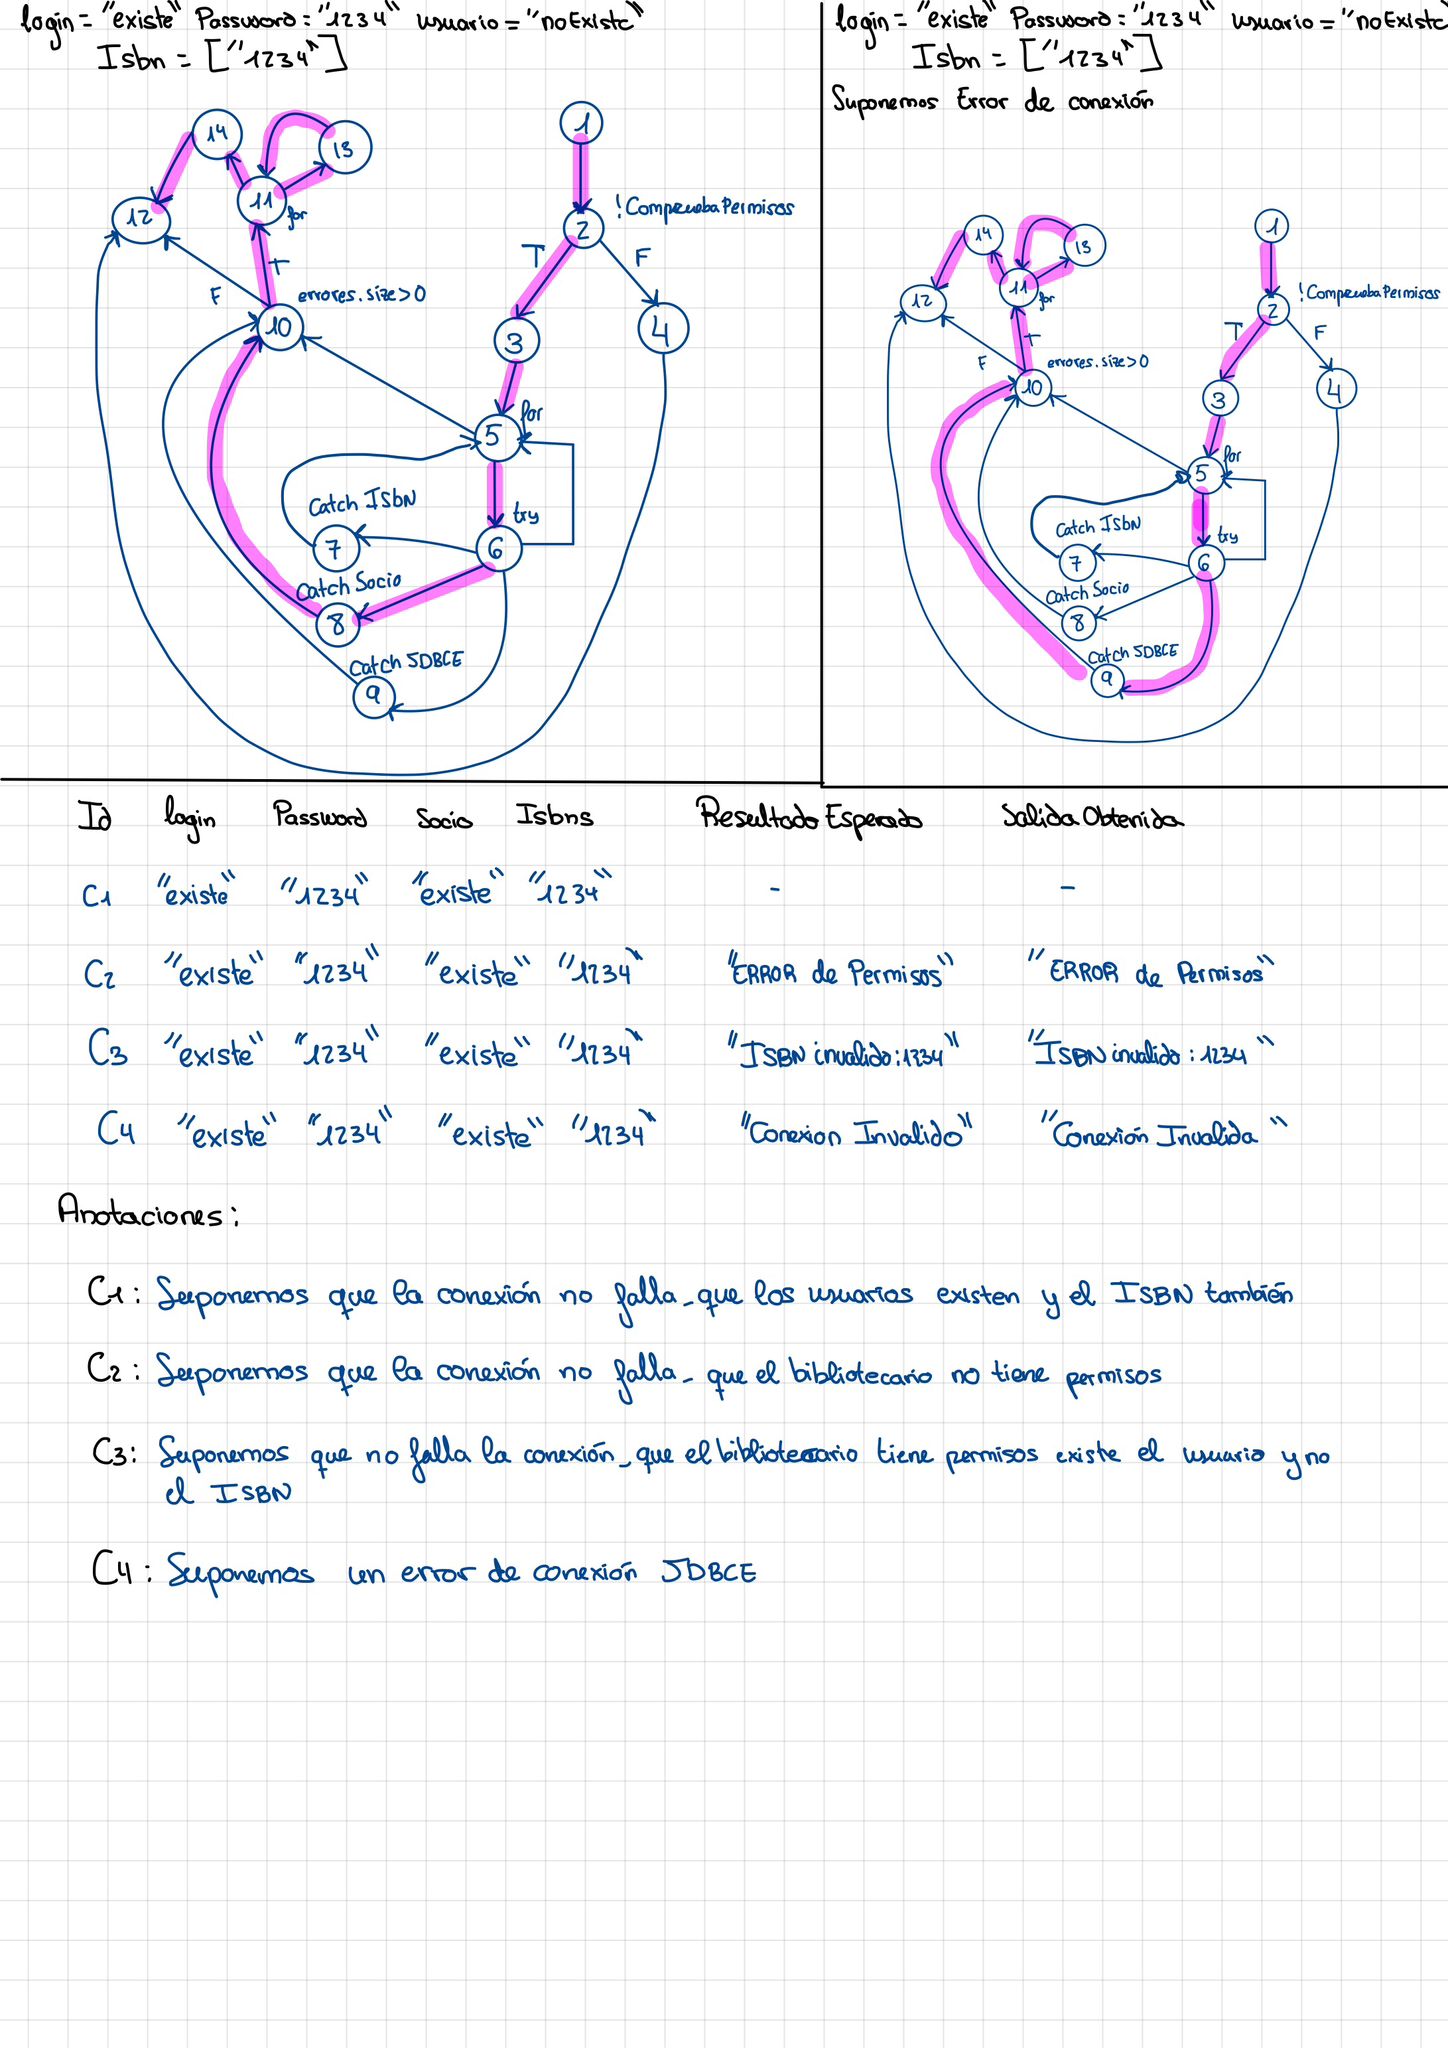 login = "existe" Password = "1234" usuario = "noExiste"
Isbn = ["1234"]
14
13
1
12
11
for
2
!CompruebaPermisos
T
F
T
F
errores.size>0
10
3
4
5
for
Catch ISBN
try
7
6
Catch Socio
8
Catch JDBCE
9
login = "existe" Password = "1234" usuario = "noExist
Isbn = ["1234"]
Suponemos Error de conexión
14
13
1
12
11
for
2
!CompruebaPermisos
T
F
T
F
errores.size>0
10
3
4
5
for
Catch ISBN
try
7
6
Catch Socio
8
Catch JDBCE
9
Id login Password Socio Isbns Resultado Esperado Salida Obtenida
C1 "existe" "1234" "existe" "1234" - -
C2 "existe" "1234" "existe" "1234" "ERROR de Permisos" "ERROR de Permisos"
C3 "existe" "1234" "existe" "1234" "ISBN invalido:1234" "ISBN invalido: 1234"
C4 "existe" "1234" "existe" "1234" "Conexion Invalido" "Conexión Invalida"
Anotaciones:
C1: Suponemos que la conexión no falla - que los usuarios existen y el ISBN también
C2: Suponemos que la conexión no falla - que el bibliotecario no tiene permisos
C3: Suponemos que no falla la conexión - que el bibliotecario tiene permisos existe el usuario y no
el ISBN
C4: Suponemos un error de conexión JDBCE